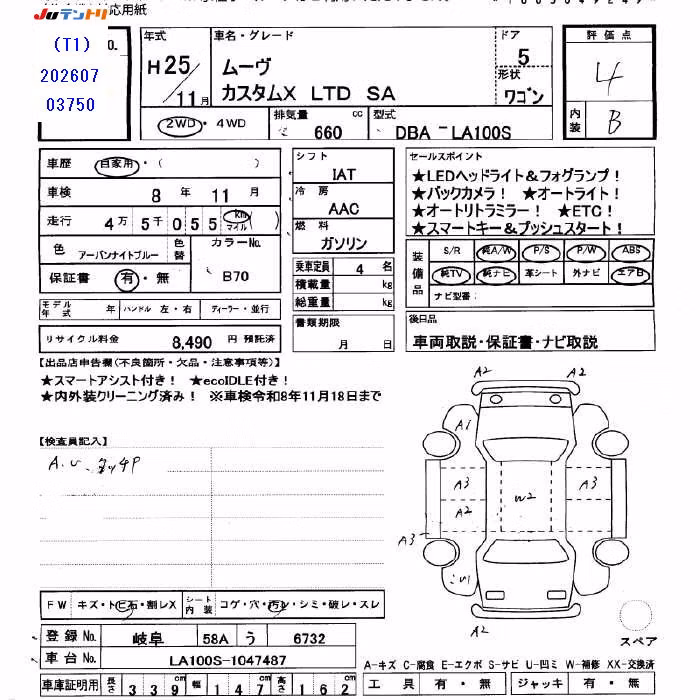 応用紙
Juテントリ
(T1)
202607
03750
O.
年式
H25/11月
車名・グレード
ムーヴ
カスタムX LTD SA
ドア
5
形状
ワゴン
評価点
4
内装
B
2WD・4WD
排気量 660 cc
型式
DBA - LA100S
車歴 自家用・( )
車検 8年 11月
走行 4万5千055 km マイル ( )
色 アーバンナイトブルー
色替
カラーNo.
B70
保証書 有・無
シフト
IAT
冷房
AAC
燃料
ガソリン
乗車定員 4名
積載量 kg
総重量 kg
書類期限
月 日
セールスポイント
★LEDヘッドライト&フォグランプ！
★バックカメラ！ ★オートライト！
★オートリトラミラー！ ★ETC！
★スマートキー&プッシュスタート！
装備品
S/R 純A/W P/S P/W ABS
純TV 純ナビ 革シート 外ナビ エアB
ナビ型番：
モデル年式 年 ハンドル 左・右 ディーラー・並行
リサイクル料金 8,490 円 預託済
後日品
車両取説・保証書・ナビ取説
【出品店申告欄(不良箇所・欠品・注意事項等)】
★スマートアシスト付き！ ★ecoIDLE付き！
★内外装クリーニング済み！ ※車検令和8年11月18日まで
【検査員記入】
A.U.
A2 A2
A1
A3 A3
A2
W2
A3
A2
FW キズ・トビ石・割レX
シート内装 コゲ・穴・汚レ・シミ・破レ・スレ
登録No. 岐阜 58A う 6732
車台No. LA100S-1047487
車庫証明用 長さ 339cm 幅 147cm 高さ 162cm
スペア
A-キズ C-腐食 E-エクボ S-サビ U-凹ミ W-補修 XX-交換済
工具 有・無 ジャッキ 有・無